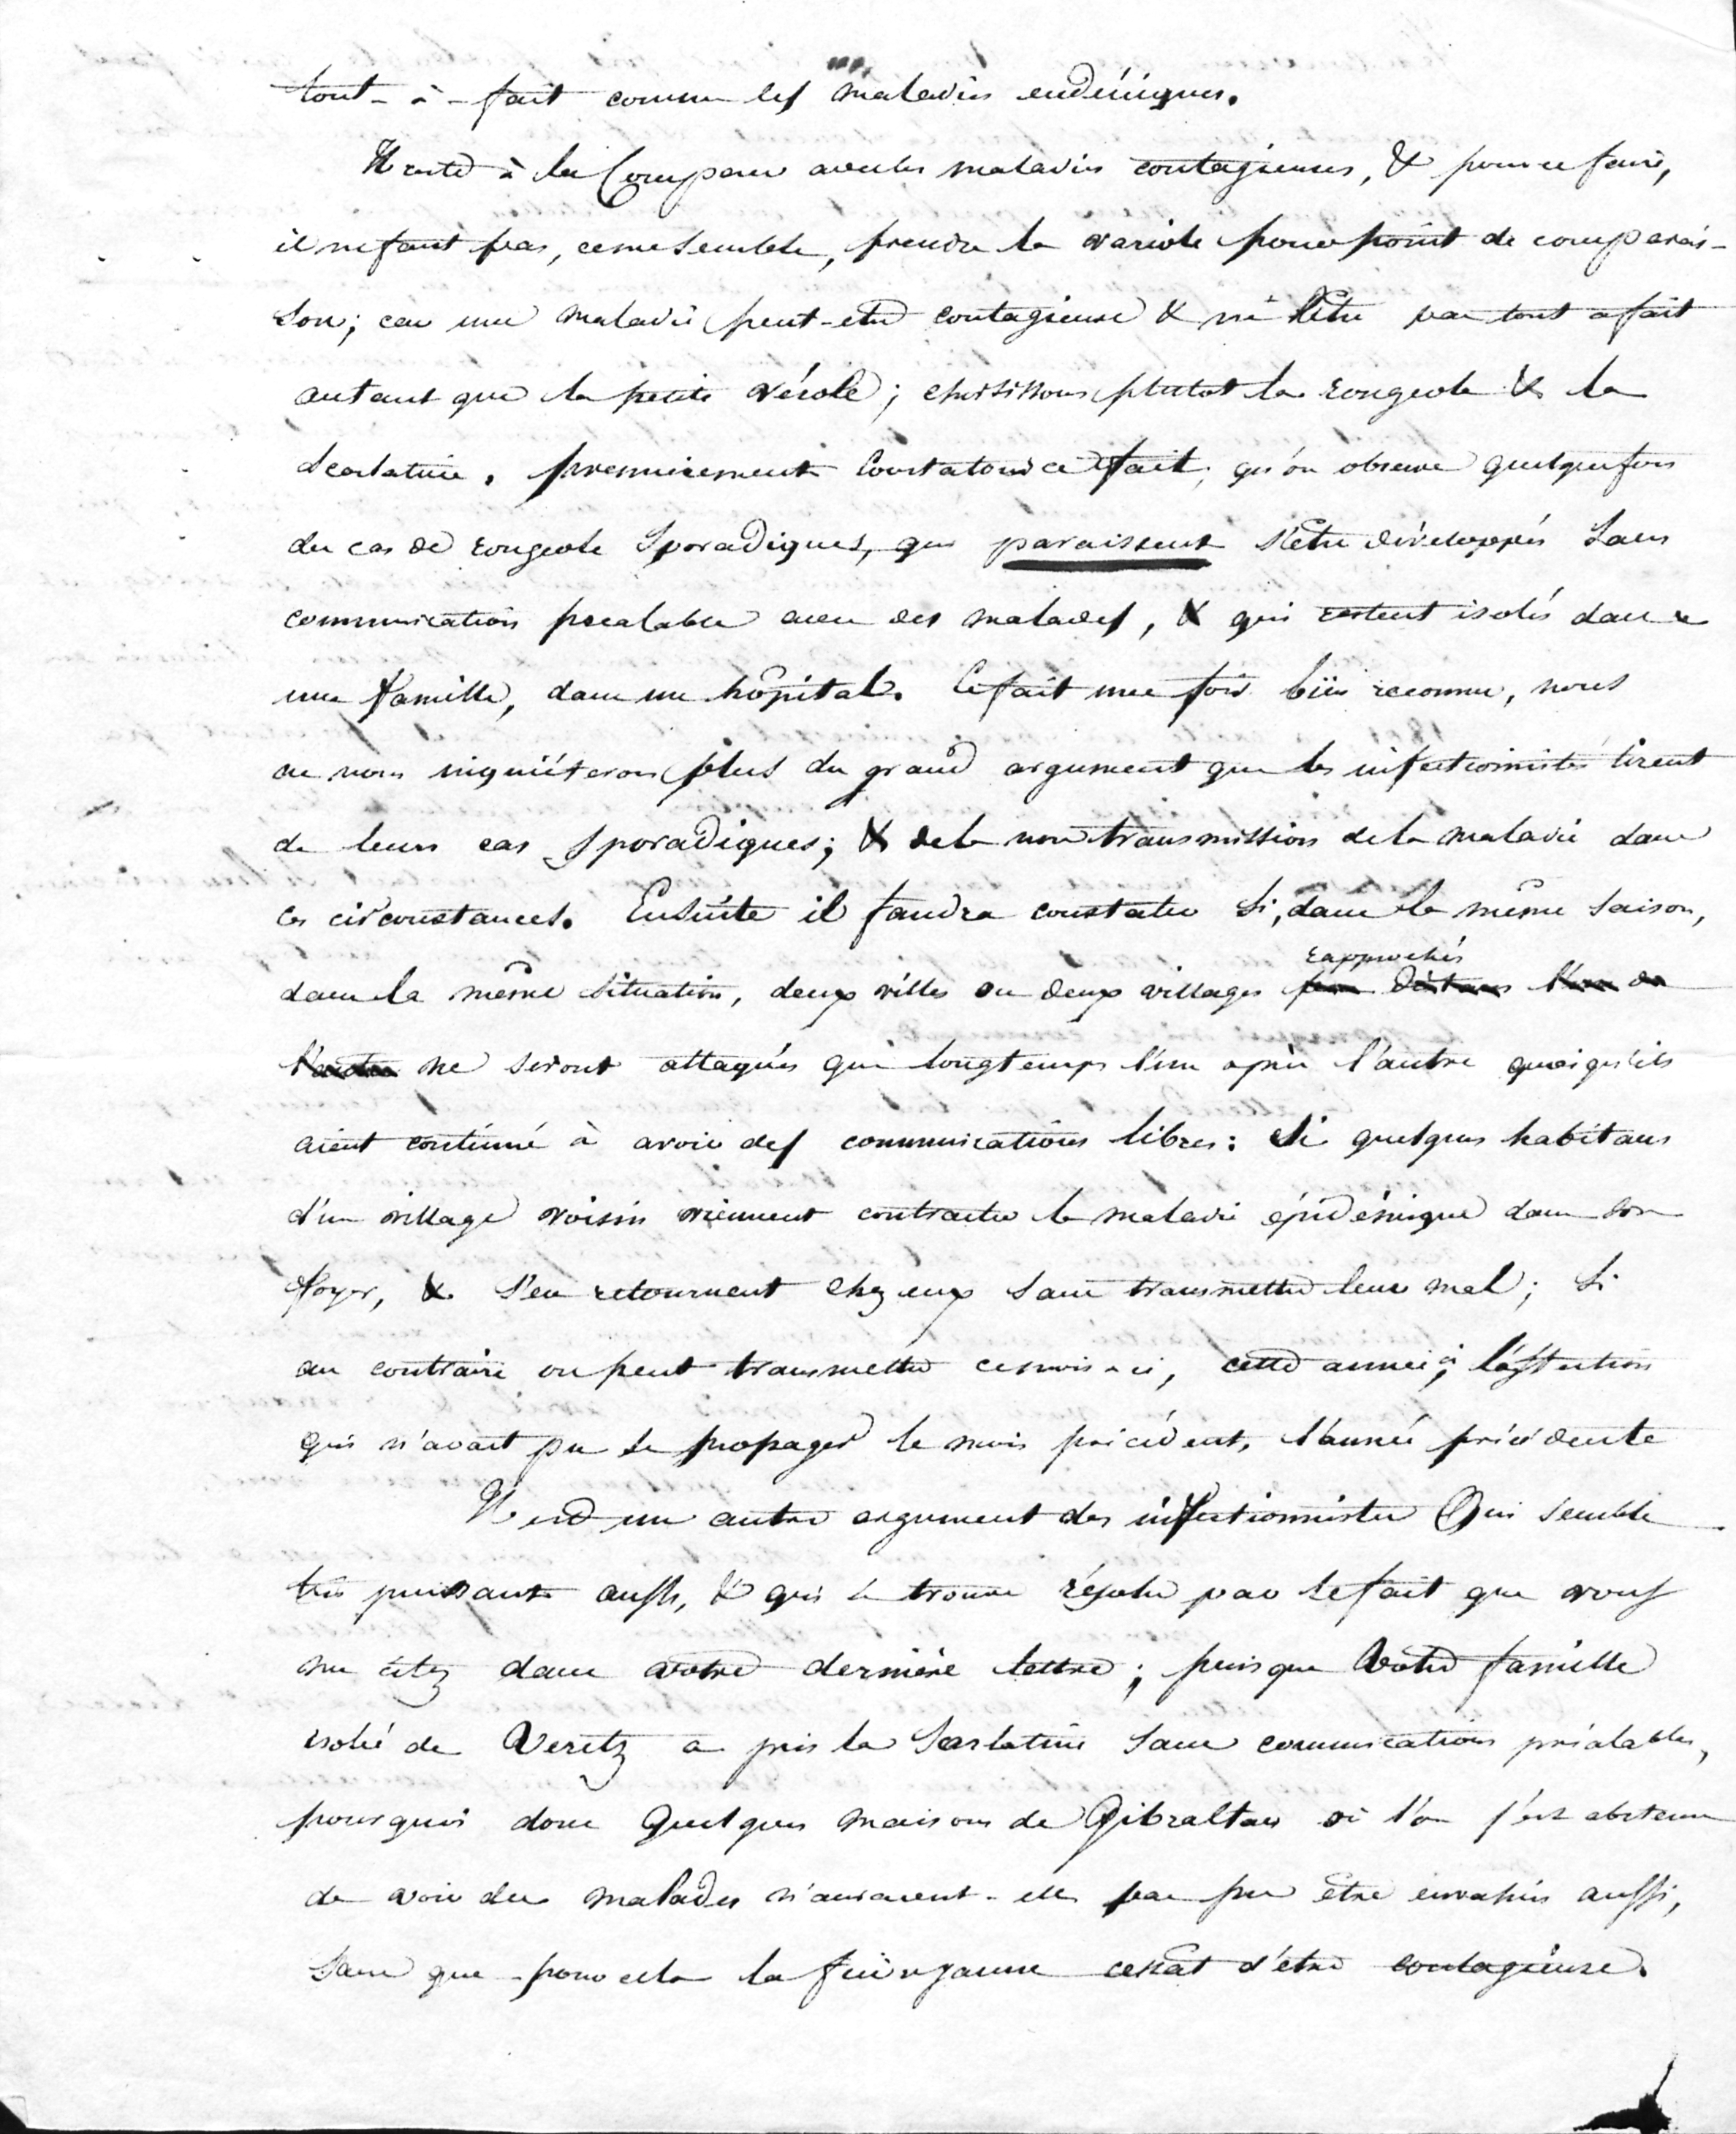 tout-à-fait comme les maladies endémiques.
Il reste à la Comparer avec les maladies contagieuses, & pour ce faire,
il ne faut pas, ce me semble, prendre la variole pour point de comparai-
son; car une maladie peut-etre contagieuse & ne l'être pas tout a fait
autant que la petite vérole; choisissons plutot la rougeole & la
scarlatine. premierement Constatons ce fait, qu'on observe quelquefois
des cas de rougeole Sporadiques, qui paraissent s'être développés Sans
communication préalable avec des malades, & qui restent isolés dans
une famille, dans un hôpital. Ce fait une fois bien reconnu, nous
ne nous inquiéterons plus du grand argument que les infectionnistes tirent
de leurs cas Sporadiques; & de la non transmission de la maladie dans
ces circonstances. Ensuite il faudra constater Si, dans la même saison,
dans la même situation, deux villes ou deux villages rapprochés peu distans l'un de
l'autre ne seront attaqués que longtemps l'un après l'autre quoiqu'ils
aient continué à avoir des communications libres: Si quelques habitans
d'un village voisin viennent contracter la maladie épidémique dans son
foyer, & s'en retournent chez eux sans transmettre leur mal; Si
au contraire on peut transmettre ce mois-ci, cette année ci, l'affection
qui n'avait pu se propager le mois précédent, l'année précédente
Il est un autre argument des infectionnistes Qui semble
très puissant aussi, & qui se trouve résolu par le fait que vous
me citez dans votre dernière lettre; puisque Votre famille
isolée de Veretz a pris la Scarlatine Sans communications préalables,
pourquoi donc Quelques maisons de Gibraltar où l'on s'est abstenu
de voir des malades n'auraient-elles pas pu être envahies aussi,
Sans que pour cela la fièvre jaune cessât d'être contagieuse.